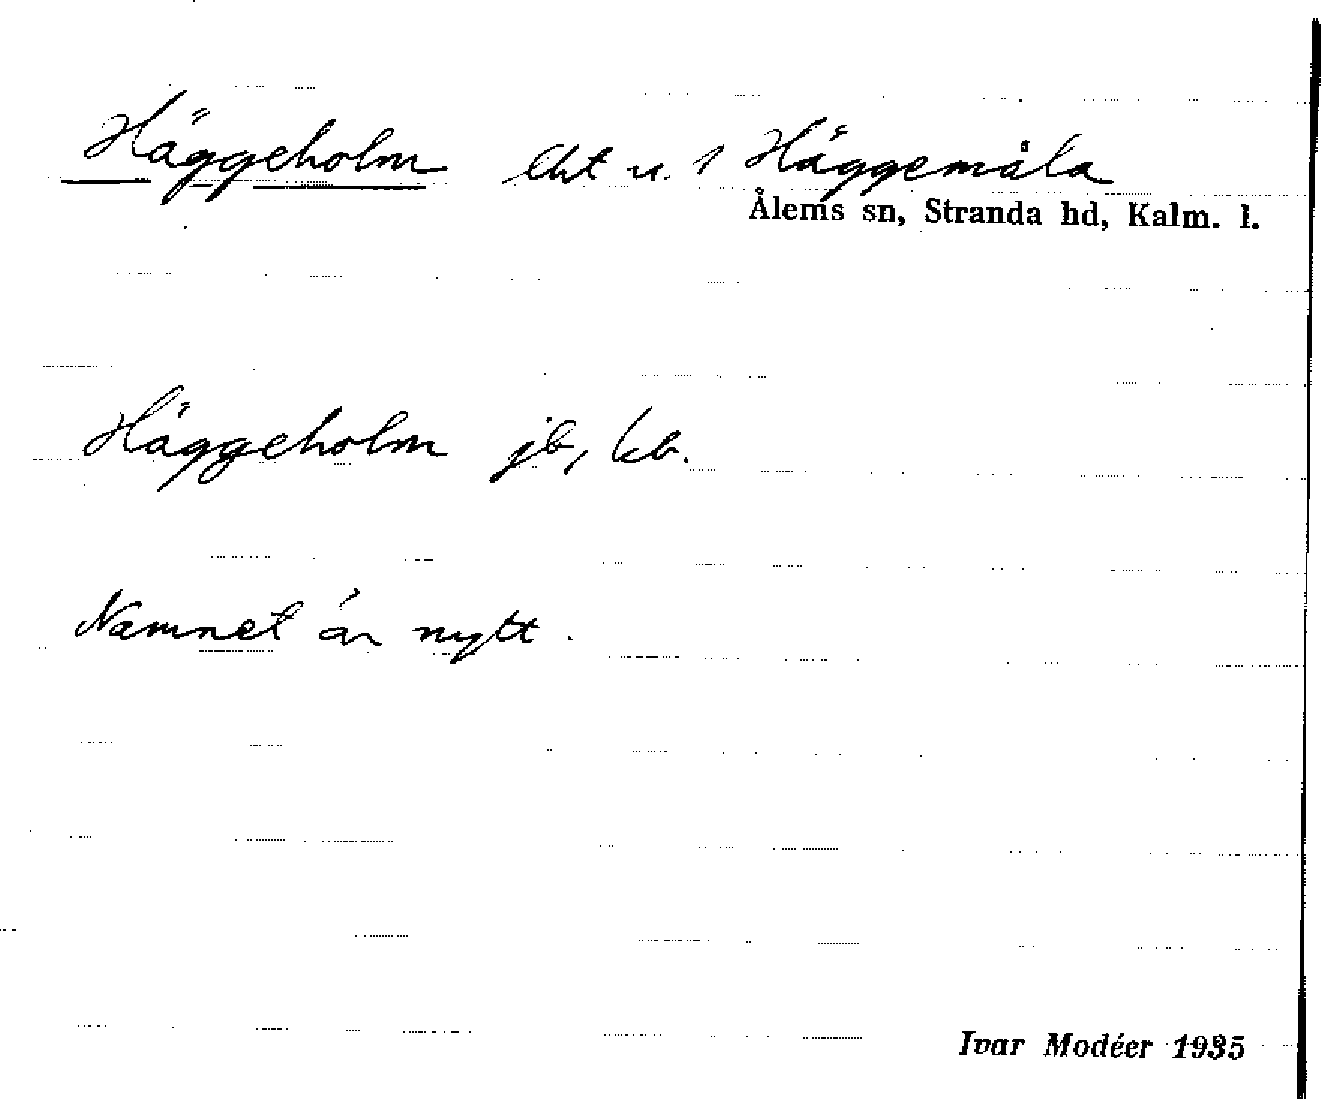 Häggeholm lht u. 1 Häggemåla
Ålems sn, Stranda hd, Kalm. l.
Häggeholm jb, kb.
Namnet är nytt.
Ivar Modéer 1935